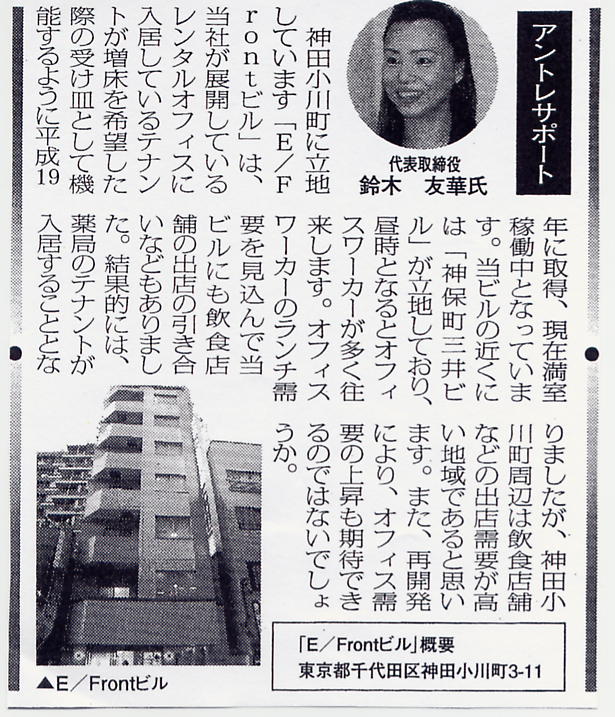 アントレサポート
代表取締役
鈴木 友華氏
神田小川町に立地
しています「E/F
rontビル」は、
当社が展開している
レンタルオフィスに
入居しているテナン
トが増床を希望した
際の受け皿として機
能するように平成19
年に取得、現在満室
稼働中となっていま
す。当ビルの近くに
は「神保町三井ビ
ル」が立地しており、
昼時となるとオフィ
スワーカーが多く往
来します。オフィス
ワーカーのランチ需
要を見込んで当
ビルにも飲食店
舗の出店の引き合
いなどもありまし
た。結果的には、
薬局のテナントが
入居することとな
りましたが、神田小
川町周辺は飲食店舗
などの出店需要が高
い地域であると思い
ます。また、再開発
により、オフィス需
要の上昇も期待でき
るのではないでしょ
うか。
「E/Frontビル」概要
東京都千代田区神田小川町3-11
▲E/Frontビル